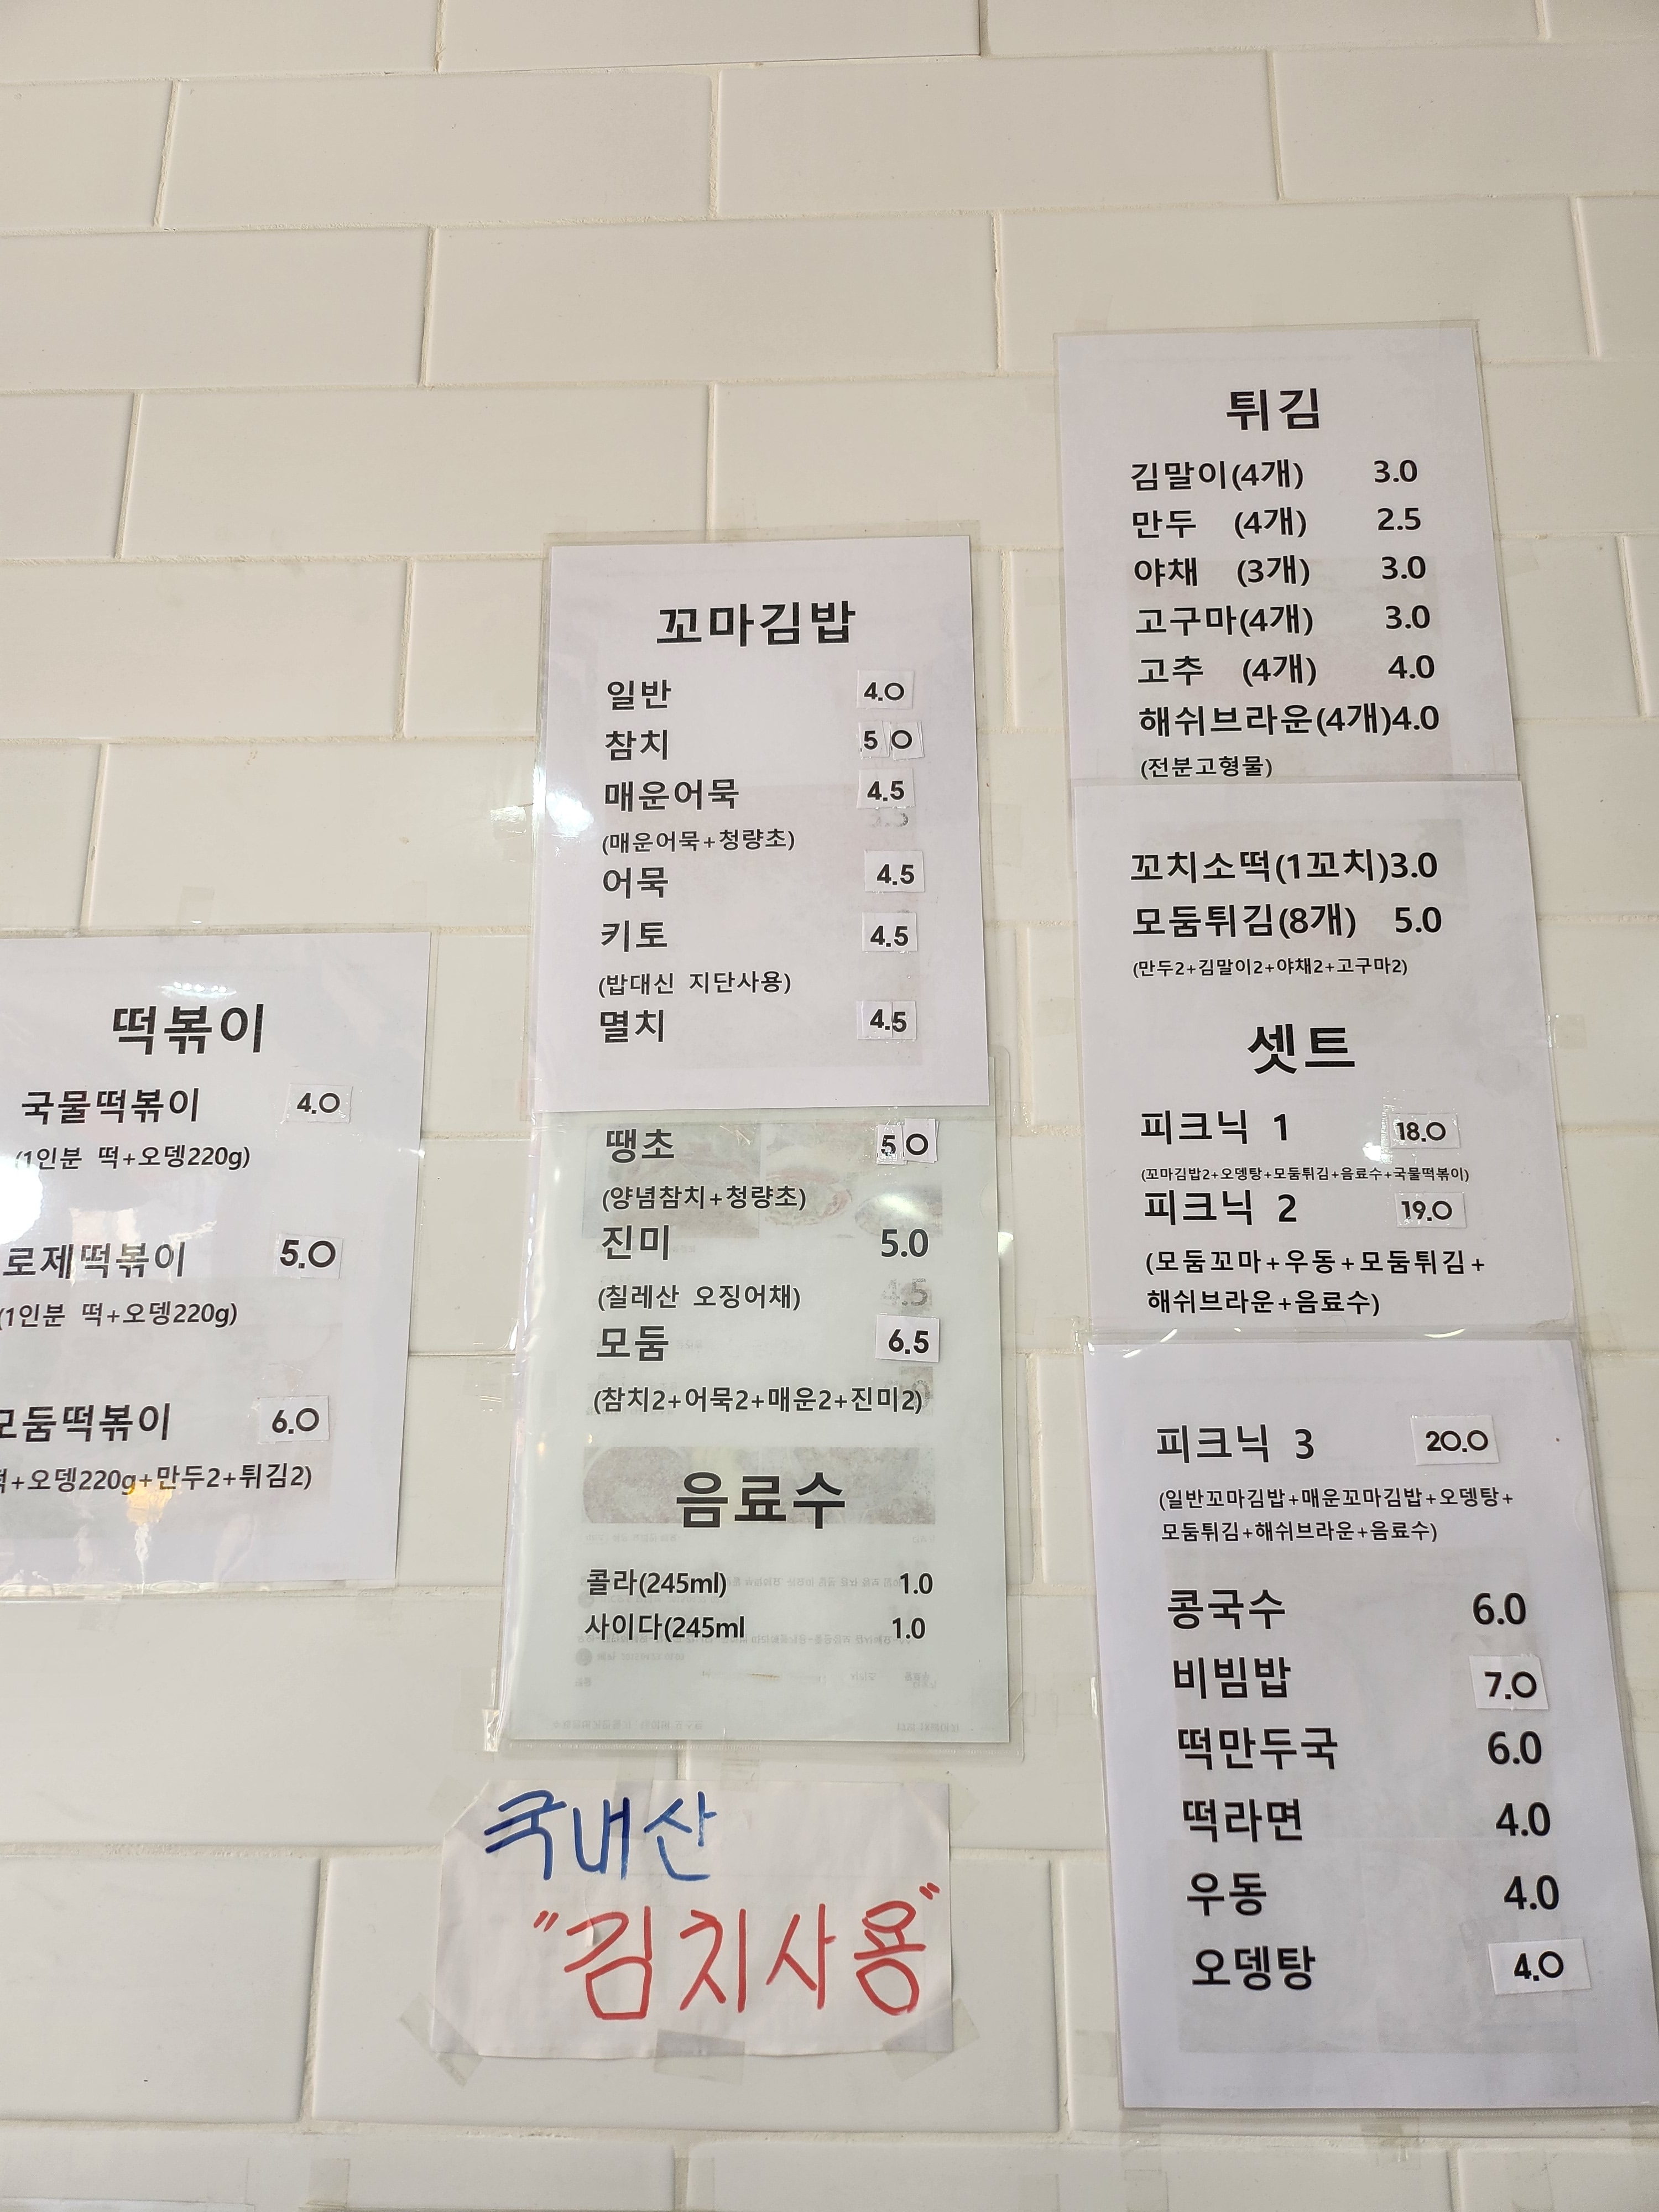 떡볶이
국물떡볶이 4.0
(1인분 떡+오뎅220g)
로제떡볶이 5.0
(1인분 떡+오뎅220g)
모둠떡볶이 6.0
떡+오뎅220g+만두2+튀김2)
꼬마김밥
일반 4.0
참치 5 0
매운어묵 4.5
(매운어묵+청량초)
어묵 4.5
키토 4.5
(밥대신 지단사용)
멸치 4.5
땡초 5 0
(양념참치+청량초)
진미 5.0
(칠레산 오징어채)
모둠 6.5
(참치2+어묵2+매운2+진미2)
음료수
콜라(245ml) 1.0
사이다(245ml 1.0
국내산
"김치사용"
튀김
김말이(4개) 3.0
만두 (4개) 2.5
야채 (3개) 3.0
고구마(4개) 3.0
고추 (4개) 4.0
해쉬브라운(4개)4.0
(전분고형물)
꼬치소떡(1꼬치)3.0
모둠튀김(8개) 5.0
(만두2+김말이2+야채2+고구마2)
셋트
피크닉 1 18.0
(꼬마김밥2+오뎅탕+모둠튀김+음료수+국물떡볶이)
피크닉 2 19.0
(모둠꼬마+우동+모둠튀김+
해쉬브라운+음료수)
피크닉 3 20.0
(일반꼬마김밥+매운꼬마김밥+오뎅탕+
모둠튀김+해쉬브라운+음료수)
콩국수 6.0
비빔밥 7.0
떡만두국 6.0
떡라면 4.0
우동 4.0
오뎅탕 4.0